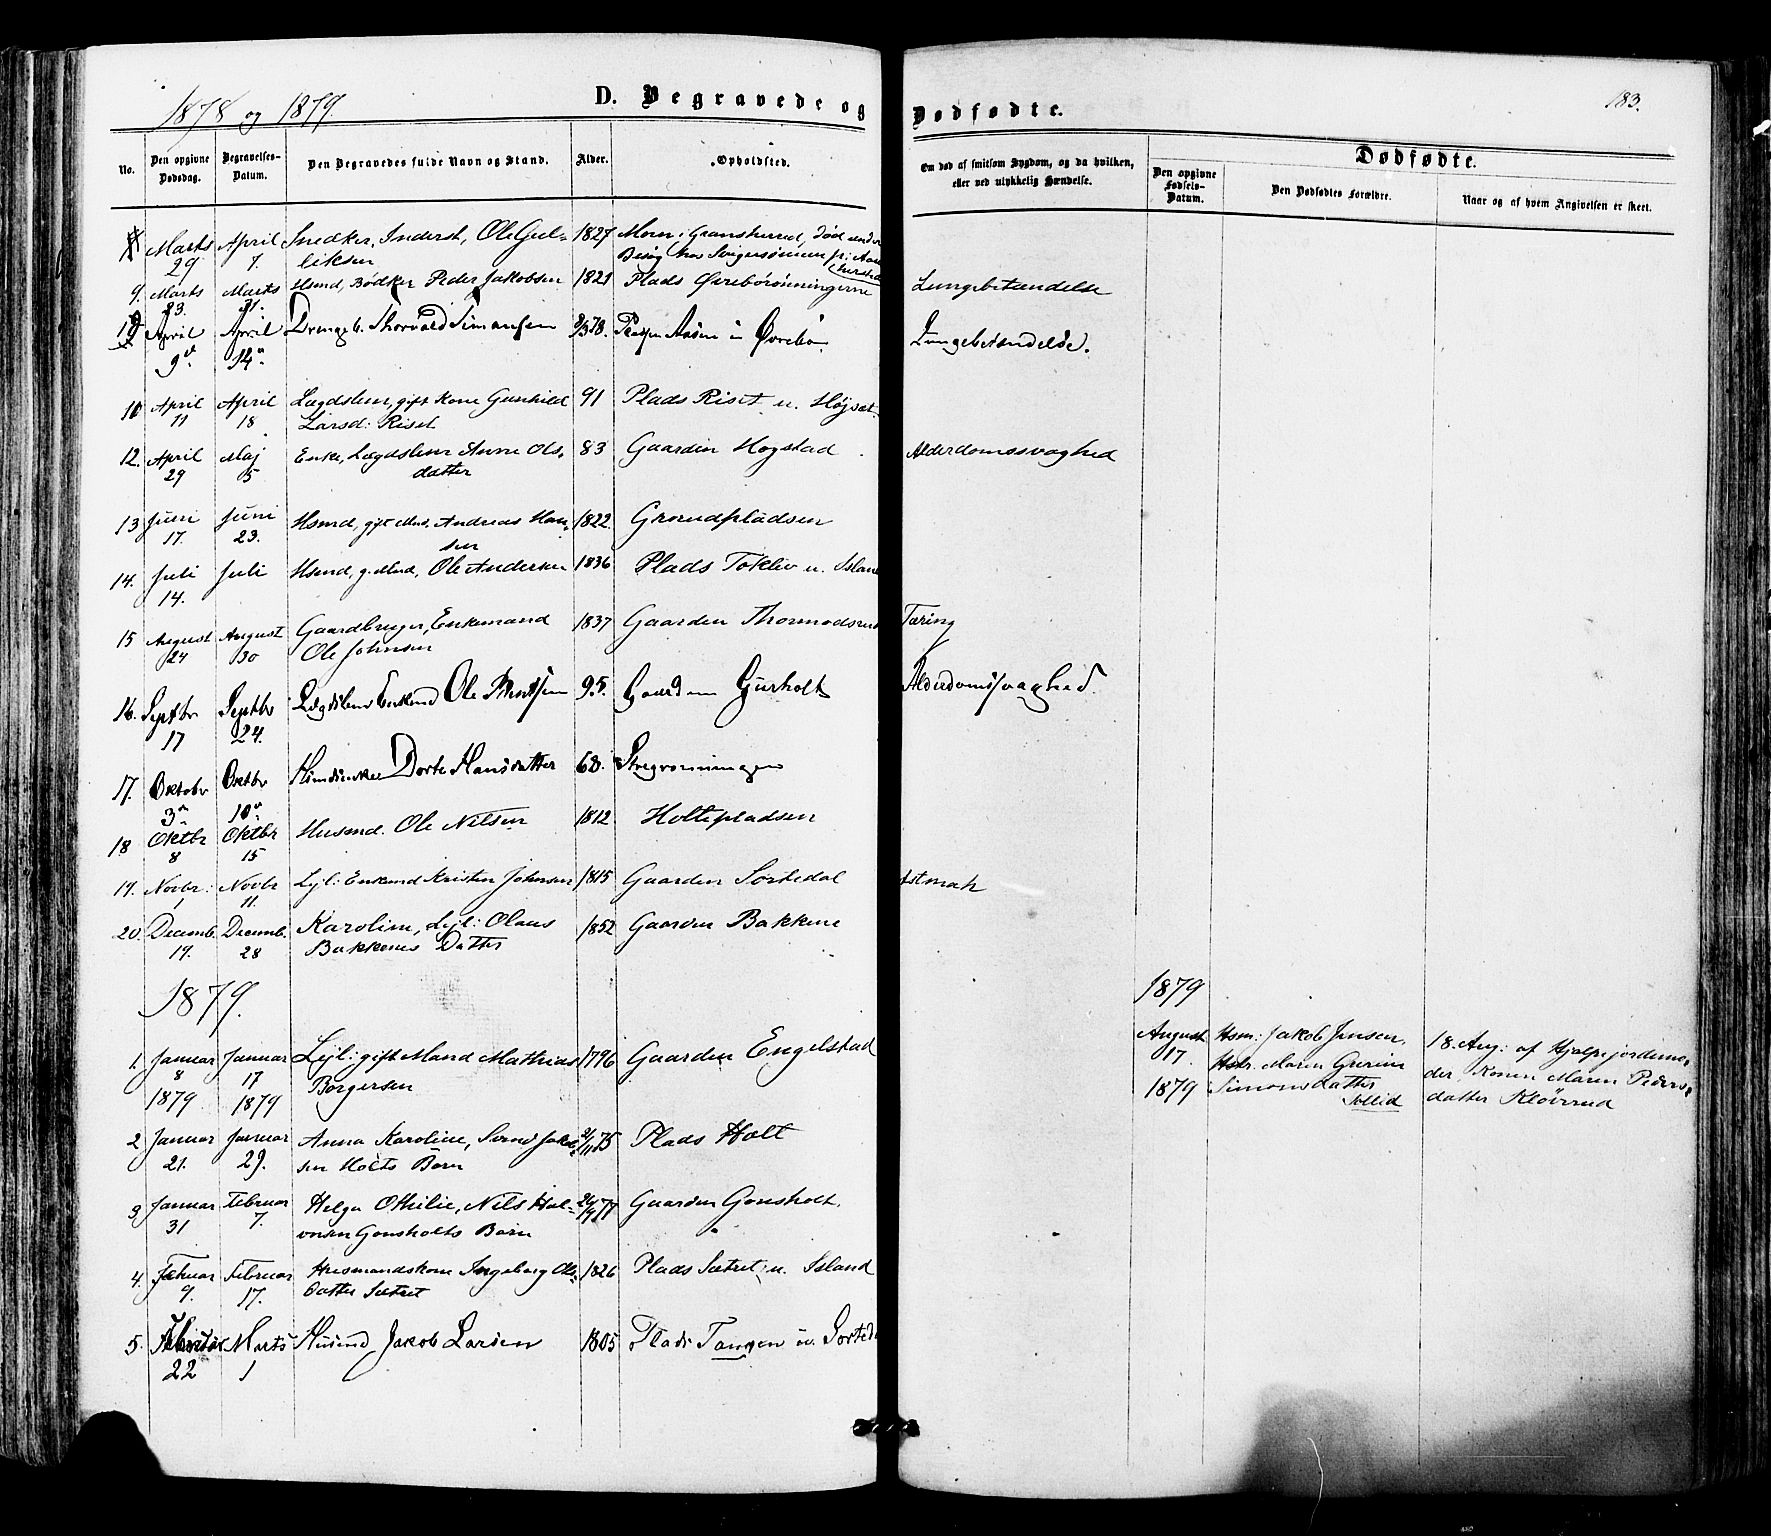 1878 og 1879.
D. Begravede og Dødfødte.
183.
No.
Den opgivne Dødsdag.
Begravelses-Datum.
Den Begravedes fulde Navn og Stand.
Alder.
Opholdsted.
Om død af smitsom Sygdom, og da hvilken,
eller ved ulykkelig Hændelse.
Dødfødte.
Den opgivne Fødsels-Datum.
Den Dødfødtes Forældre.
Naar og af hvem Angivelsen er skeet.
Marts April Snedker, Inderst, Ole Gul- 1827 Moen i Gransherred, død under
29 7. liksen Besøg hos Svigersønnen
9. Marts Marts Hsmd, Bødker Peder Jakobsen 1821 Plads Øvrebørønningerne Lungebetændelse
23. 31.
April April Drengeb. Thorvald Simonsen 78. Pladsen Aasen u Øvrebø Lungebetændelse.
9 14
April April Lægdslem, gift Kone Gunhild 91 Plads Riset u. Højset
11 18 Larsd: Riset
12. April Maj Enke, Lægdslem Anne Ols- 83 Gaarden Hogstad Alderdomssvaghed
29 5 datter
13 Juni Juni Hsmd, gift Md. Andreas Han- 1822 Grorudpladsen
17. 23. sen
14. Juli Juli Hsmd, g. Md, Ole Andersen 1836 Plads Toklev u. Island
14.
15 August August Gaardbruger, Enkemand 1837 Gaarden Thormodsrud Tæring
24 30 Ole Johnsen
16. Septbr Septbr Lægdslem Enkemd Ole 95. Gaarden Gurholt Alderdomssvaghed.
17 24.
17. Oktobr Oktbr Dorte Hansdatter 68.
3 10
18 Oktbr Oktbr Husmd. Ole Nilsen 1812 Holtepladsen
8 15
19. Novbr: Novbr Lejl: Enkemd Kristen Johnsen 1815 Gaarden Sortedal Astmah
1 11.
20. Decemb. Decemb. Karoline, Lejl: Olaus 1852 Gaarden Bakkene
19. 28 Bakkenes Datter
1879.
1. Januar Januar Lejl: gift Mand Mathias 1796 Gaarden Engelstad
8 17 Borgersen
1879 1879
2 Januar Januar Anna Karoline, 75 Plads Holt
21. 29. sen Holts Barn
3 Januar Februar Helga Othilie, Nils Hal- 77 Gaarden Gonsholt.
31 7. vorsen Gonsholts Barn
4. Februar Februar Husmandskone Ingeborg Ols- 1826 Plads Sætret u. Island
9. 17. datter Sætret
5. Februar Marts Husmd Jakob Larsen 1805 Plads Tangen u. Sorted
22 1
1879
August Hsm: Jakob Jensen, 18. Aug: af Hjælpejordemo-
17. Hstr. Maren Gurine der, Konen Maren Peders-
1879 Simonsdatter datter Kløvrud
Sollid